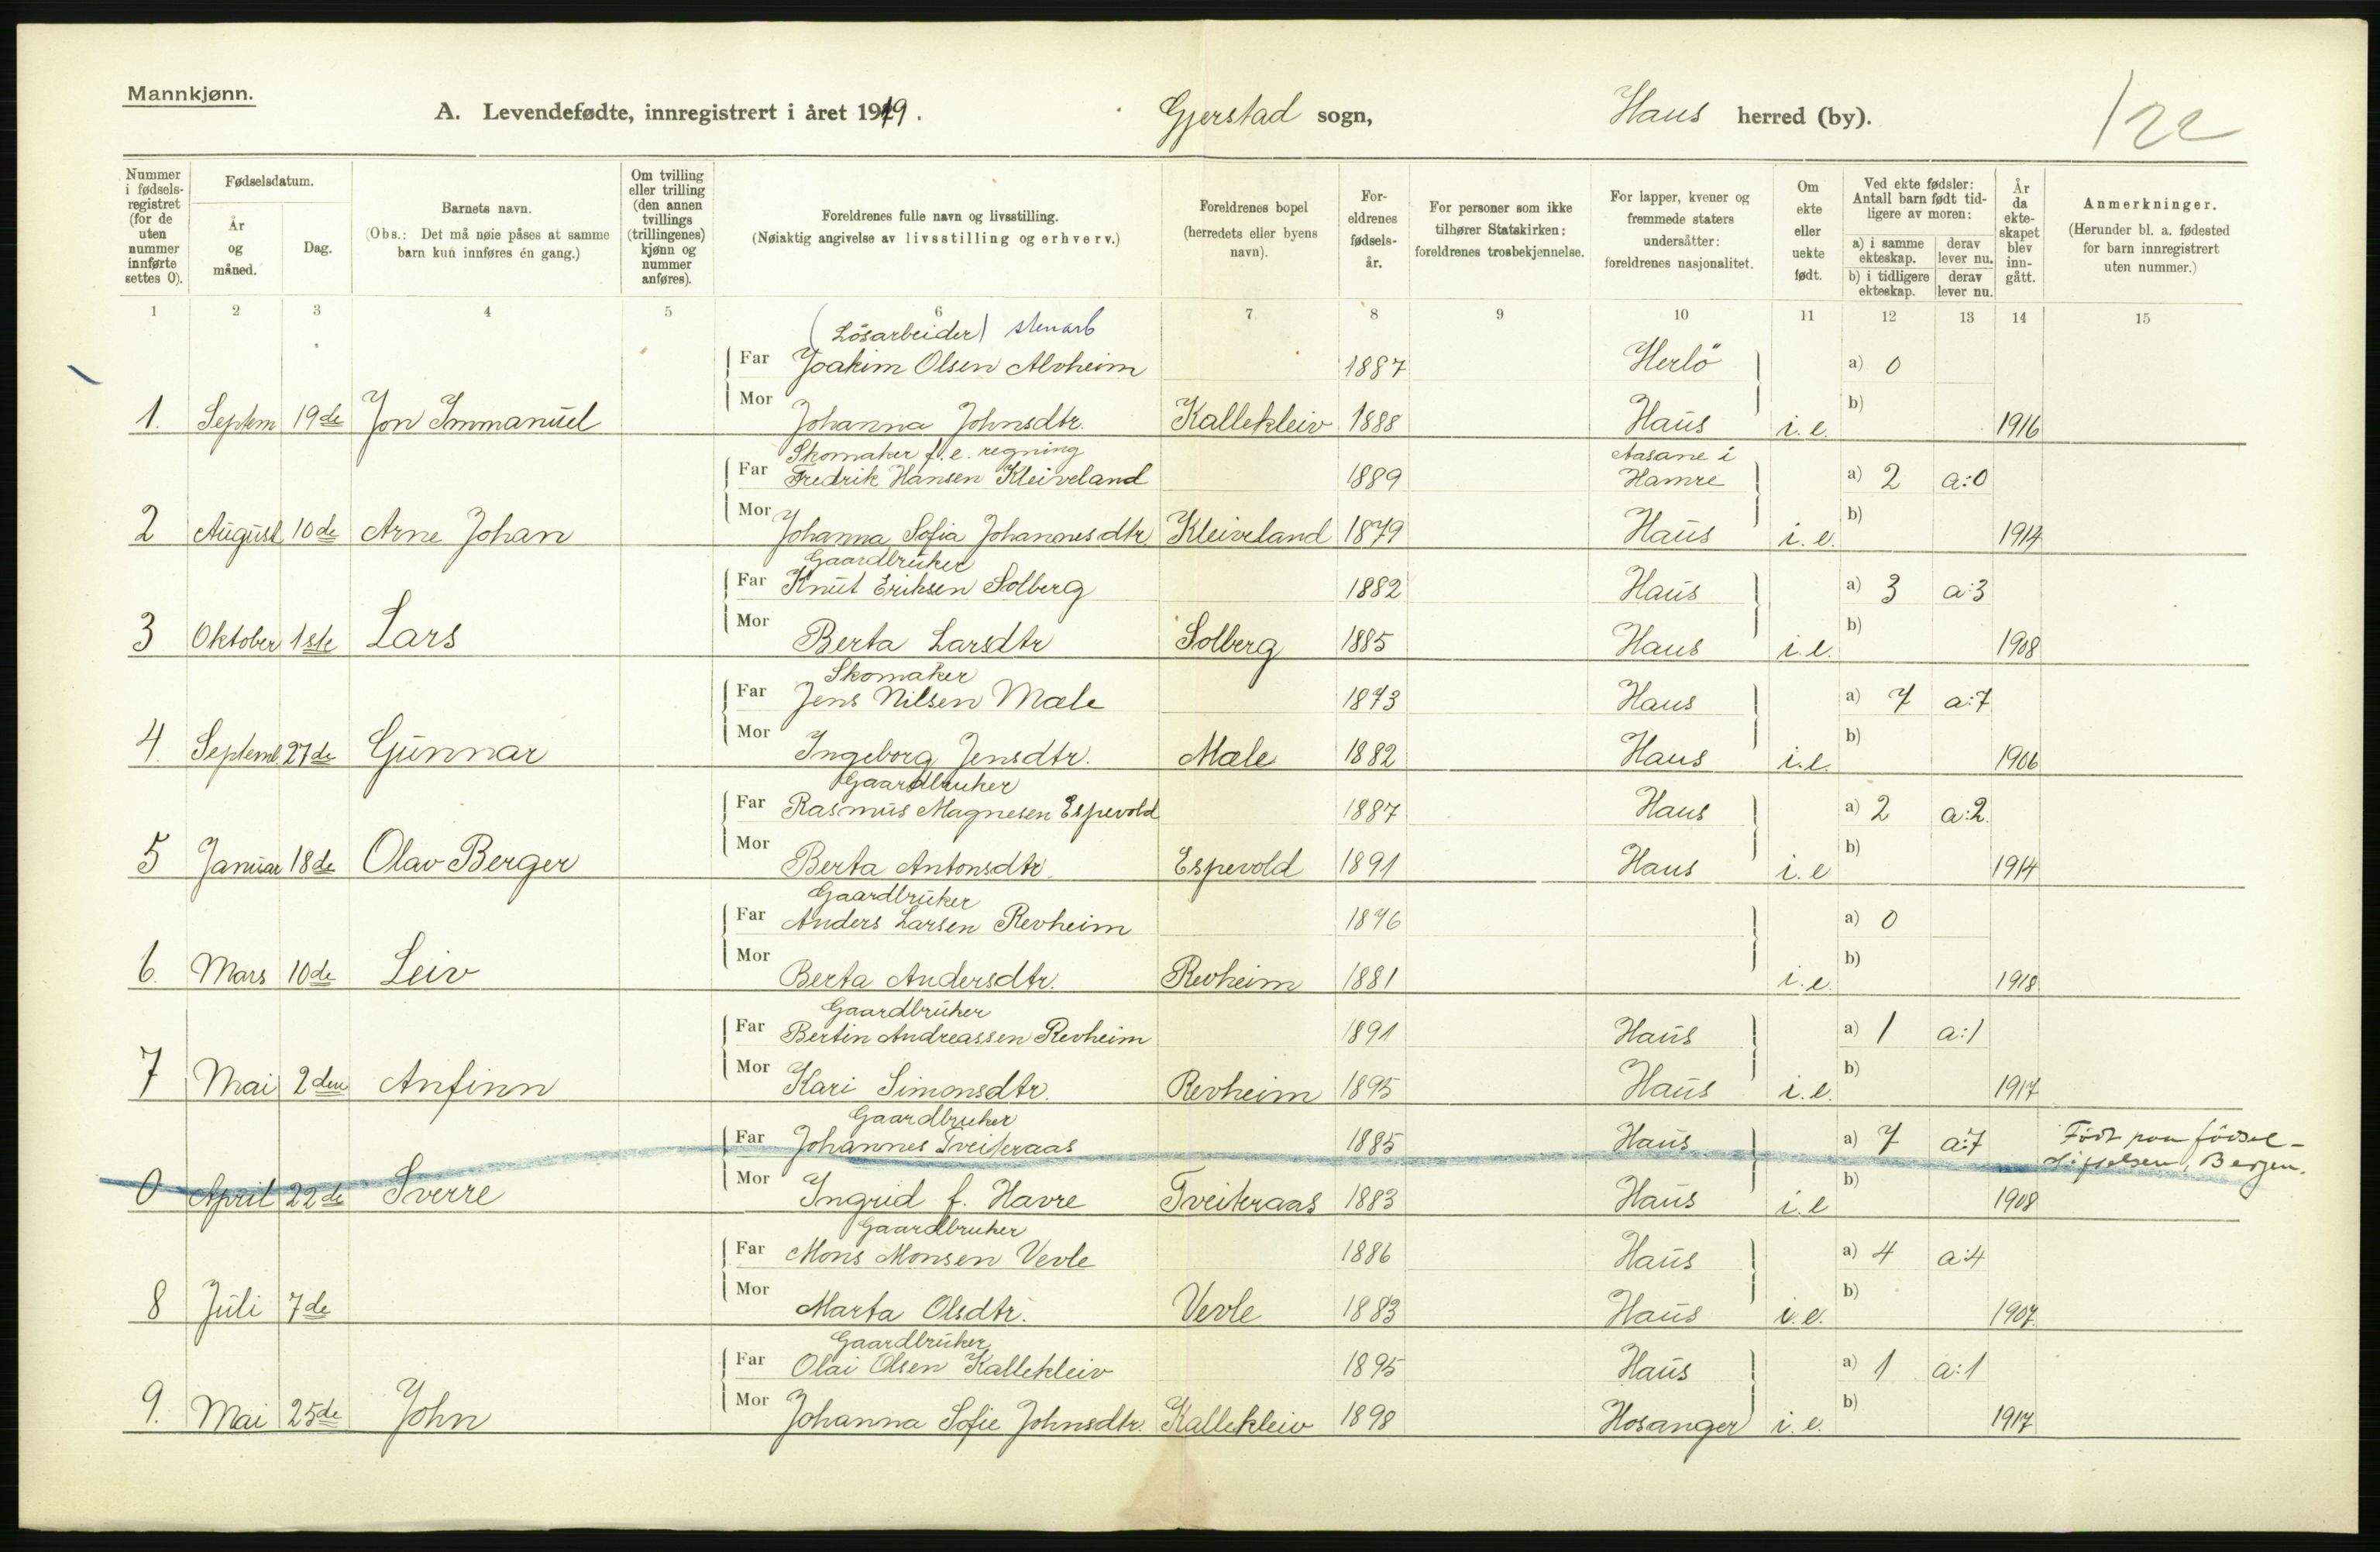 Mannkjønn.
A. Levendefødte, innregistrert i året 1919. Gjerstad sogn, Haus herred (by). 122
Nummer i fødselsregistret (for de uten nummer innførte settes 0).
Fødselsdatum.
År og måned.
Dag.
Barnets navn.
(Obs.: Det må nøie påses at samme barn kun innføres én gang.)
Om tvilling eller trilling (den annen tvillings (trillingenes) kjønn og nummer anføres).
Foreldrenes fulle navn og livsstilling.
(Nøiaktig angivelse av livsstilling og erhverv.)
Foreldrenes bopel (herredets eller byens navn).
Foreldrenes fødselsår.
For personer som ikke tilhører Statskirken: foreldrenes trosbekjennelse.
For lapper, kvener og fremmede staters undersåtter: foreldrenes nasjonalitet.
Om ekte eller uekte født.
Ved ekte fødsler: Antall barn født tidligere av moren:
a) i samme ekteskap. derav lever nu.
b) i tidligere ekteskap. derav lever nu.
År da ekteskapet blev inngått.
Anmerkninger.
(Herunder bl. a. fødested for barn innregistrert uten nummer.)
1 2 3 4 5 6 7 8 9 10 11 12 13 14 15
(Lösarbeider) stenarb
Far Joakim Olsen Alvheim 1887 Herlö a) 0
1. Septem 19de Jon Immanuel Mor Johanna Johnsdtr. Kallekleiv 1888 Haus i.e. b) 1916
Skomaker f. e. regning Aasane i
Far Fredrik Hansen Kleiveland 1889 Hamre a) 2 a:0
2 August 10de Arne Johan Mor Johanna Sofia Johannesdtr. Kleiveland 1879 Haus i.e. b) 1914
Gaardbruker
Far Knut Eriksen Solberg 1882 Haus a) 3 a:3
3 Oktober 1ste Lars Mor Berta Larsdtr Solberg 1885 Haus i.e. b) 1908
Skomaker
Far Jens Nilsen Mæle 1873 Haus a) 7 a:7
4. Septemb 27de Gunnar Mor Ingeborg Jensdtr. Mæle 1882 Haus i.e. b) 1906
Gaardbruker
Far Rasmus Magnesen Espevold 1887 Haus a) 2 a:2.
5 Januar 18de Olav Berger Mor Berta Antonsdtr. Espevold 1891 Haus i.e b) 1914
Gaardbruker
Far Anders Larsen Revheim 1876 a) 0
6. Mars 10de Leiv Mor Berta Andersdtr. Revheim 1881 i.e. b) 1918
Gaardbruker
Far Bertin Andreassen Revheim 1891 Haus a) 1 a:1
7 Mai 2den Anfinn Mor Kari Simonsdtr. Revheim 1895 Haus i.e. b) 1917
Gaardbruker
Far Johannes Tveiteraas 1885 Haus a) 7 a:7 Födt paa födsel-
stiftelsen, Bergen.
0 April 22de Sverre Mor Ingrid f. Havre Tveiteraas 1883 Haus i.e b) 1908
Gaardbruker
Far Mons Monsen Vevle 1886 Haus a) 4 a:4
8 Juli 7de Mor Marta Olsdtr. Vevle 1883 Haus i.e. b) 1907.
Gaardbruker
Far Olai Olsen Kallekleiv 1895 Haus a) 1 a:1
9. Mai 25de John Mor Johanna Sofie Johnsdtr. Kallekleiv 1898 Hosanger i.e. b) 1917